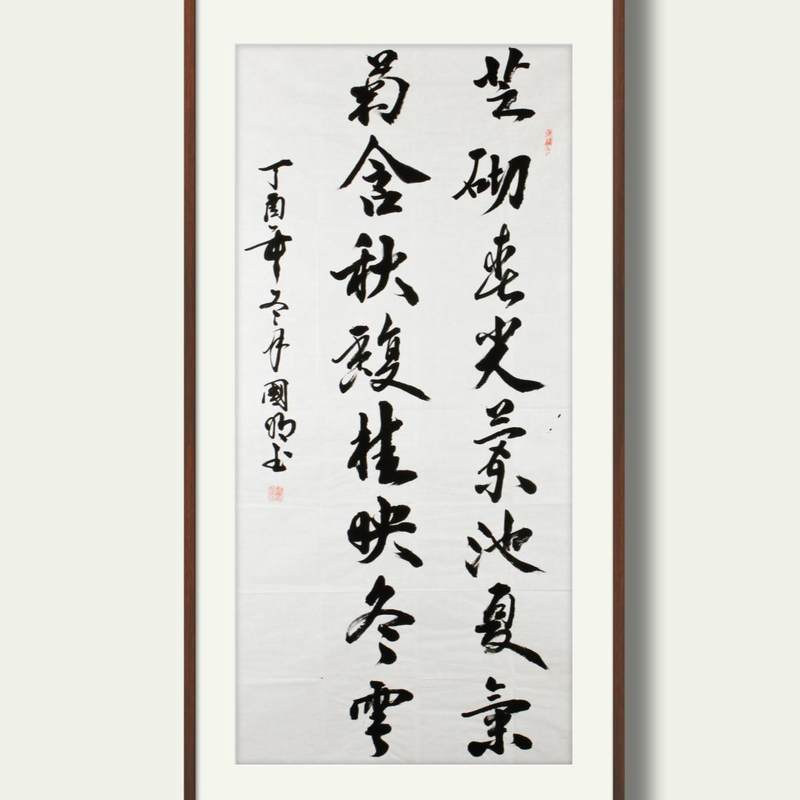 芝砌春光蘭池夏氣
菊含秋馥桂映冬雲
丁酉年冬月國明书